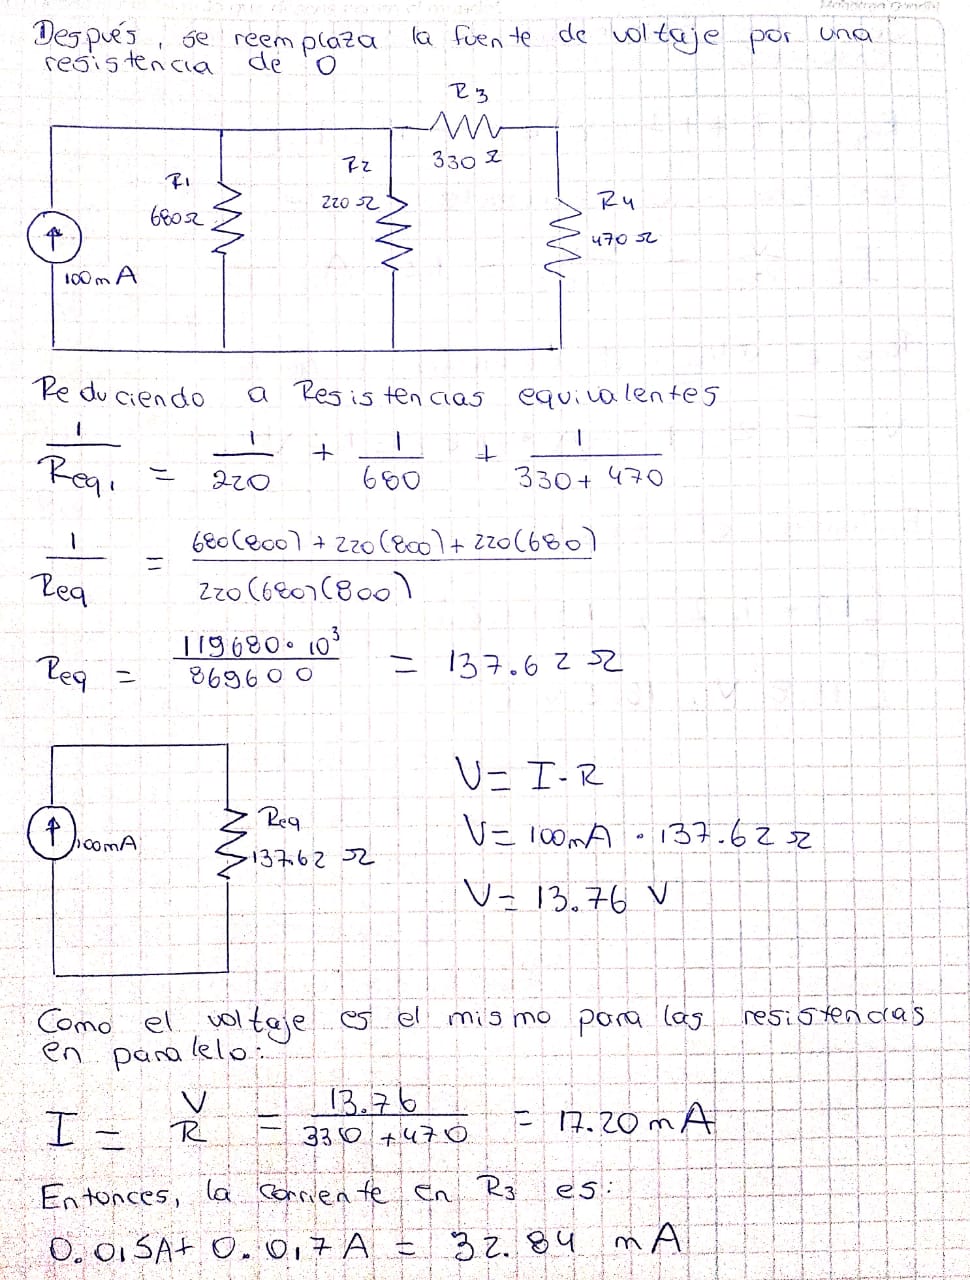 Después, se reemplaza la fuente de voltaje por una
resistencia de 0
R3
330 Ω
R1
680Ω
R2
220 Ω
R4
470 Ω
100mA
Reduciendo a Resistencias equivalentes
1/Req1 = 1/220 + 1/680 + 1/(330+470)
1/Req = (680(800) + 220(800) + 220(680))/(220(680)(800))
Req = (119680·10³)/869600 = 137.62 Ω
100mA
Req
137.62 Ω
V = I·R
V = 100mA · 137.62 Ω
V = 13.76 V
Como el voltaje es el mismo para las resistencias
en paralelo:
I = V/R = 13.76/(330+470) = 17.20 mA
Entonces, la corriente en R3 es:
0.015A + 0.017A = 32.84 mA